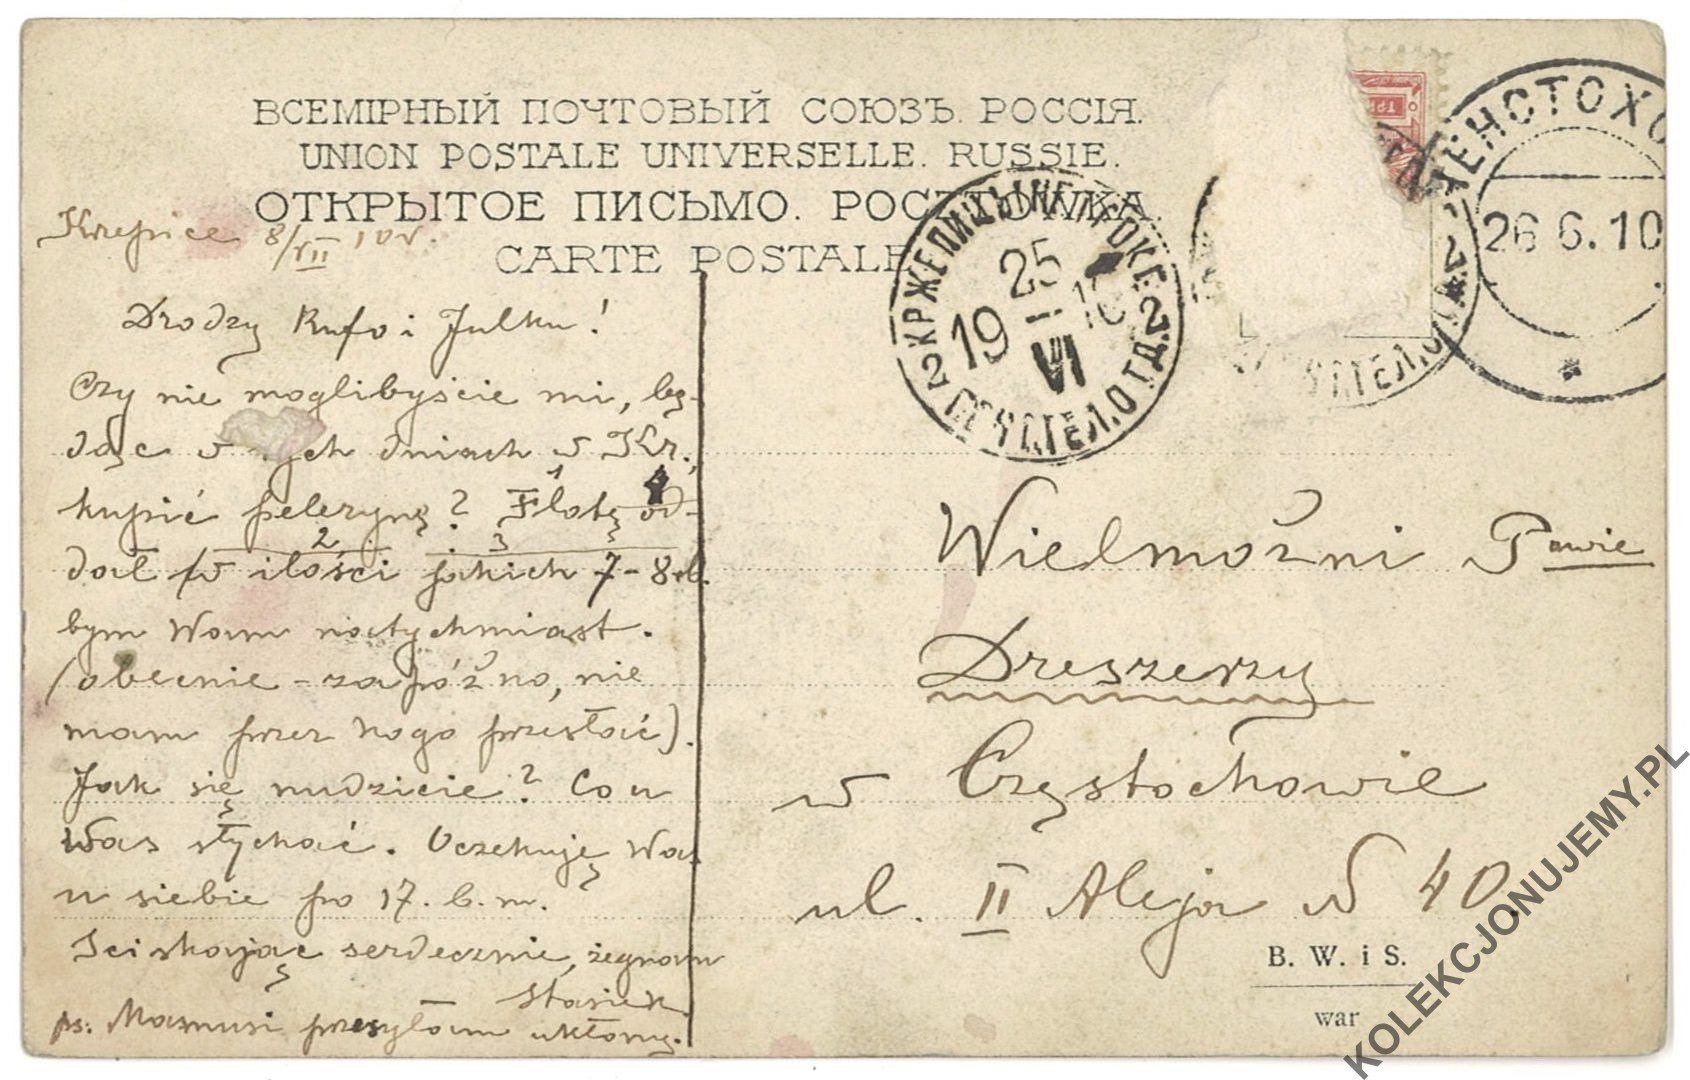 ВСЕМІРНЫЙ ПОЧТОВЫЙ СОЮЗЪ. РОССІЯ.
UNION POSTALE UNIVERSELLE. RUSSIE.
ОТКРЫТОЕ ПИСЬМО. POCZTÓWKA.
CARTE POSTALE
Krzepice 8/VII 10 r.
Drodzy Rufo i Julku!
Czy nie moglibyście mi, bę-
dąc w tych dniach w Kr.,
kupić pelerynę? Flotę od-
1 4
dał /w ilości jakich 7-8 rb.
2 3
bym Wam natychmiast.
(obecnie - zapóźno, nie
mam przez kogo przesłać).
Jak się nudzicie? Co u
Was słychać. Oczekuję Was
u siebie po 17. b.m.
Ściskając serdecznie, żegnam
Stasiek
ps: Mamusi przesyłam ukłony.
КРЖЕПИЦЫ ПЕТРОК. Г.
25
19 - 10
VI
2 ПОЧ. ТЕЛ. ОТД. 2
ЧЕНСТОХО
26 6.10
2
ТЕЛ. ОТД.
Wielmożni Panowie
Dreszerzy
w Częstochowie
ul. II Aleja N 40.
B. W. i S.
war
KOLEKCJONUJEMY.PL